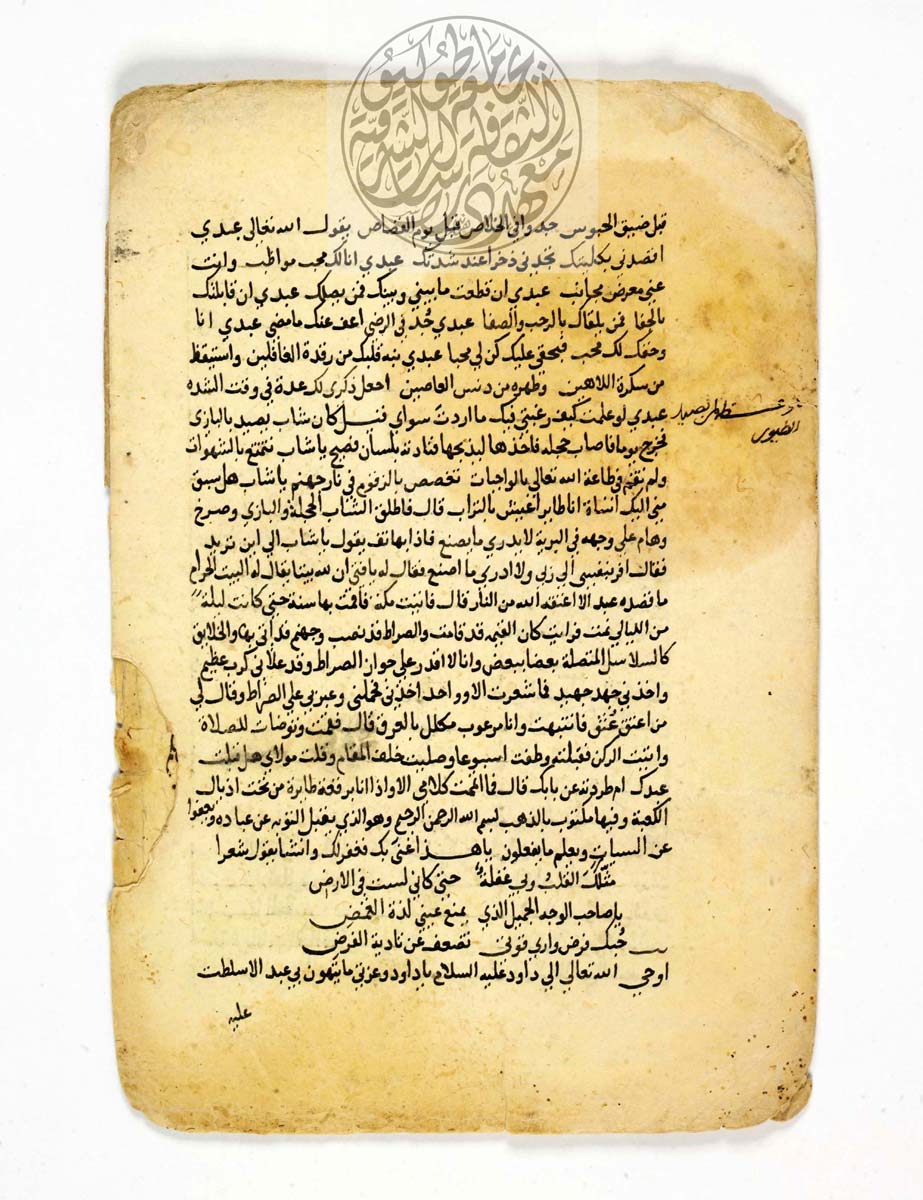 جامعة طوكيو
معهد دراسات الثقافة الشرقية
قبل ضيق الحبوس جد وافي الخلاص قبل يوم القصاص يقول الله تعالى عبدي
اقصدني بكليتك تجدني ذخرا عند شدتك عبدي انا لك محب مواظب وانت
عني معرض مجانب عبدي ان قطعت ما بيني وبينك فمن يصلك عبدي ان قابلتك
بالجفا فمن يلقاك بالرحب والصفا عبدي جد في الرضى اعف عنك ما مضى عبدي انا
وحقك لك محب فبحقي عليك كن لي محبا عبدي نبه قلبك من رقدة الغافلين واستيقظ
من سكرة اللاهين وطهره من دنس العاصين اجعل ذكري لك عدة في وقت الشده
عبدي لو علمت كيف رغبتي فيك ما اردت سواي قيل كان شاب يصيد بالبازي
فخرج يوما فاصاب حجله فاخذها ليذبحها فنادته بلسان فصيح يا شاب تتمتع بالشهوات
ولم تقم في طاعة الله تعالى بالواجبات تخصص بالزقوم في نار جهنم يا شاب هل سبق
مني اليك اساة انا طاير اعيش بالتراب قال فاطلق الشاب الحجلة والبازي وصرخ
وهام على وجهه في البرية لا يدري ما يصنع فاذا بهاتف يقول يا شاب الي اين تريد
فقال افر بنفسي الي ربي ولا ادري ما اصنع فقال له يا فتى ان لله بيتا يقال له البيت الحرام
ما قصده عبد الا اعتقه الله من النار قال فاتيت مكة فاقمت بها سنة حتى كانت ليلة
من الليالي نمت فرايت كان القيمه قد قامت والصراط قد نصب وجهنم قد اتي بها والخلايق
كالسلاسل المتصلة بعضا ببعض وانا لا اقدر علي جواز الصراط وقد علاني كرب عظيم
واخذني جهد جهيد فما شعرت الا وواحد اخذني فحملني وعبر بي علي الصراط وقال لي
من اعتق عتق فانتبهت وانا مرعوب مكلل بالعرق قال فقمت وتوضات للصلاة
واتيت الركن فقبلته وطفت اسبوعا وصليت خلف المقام وقلت مولاي هل قبلت
عبدك ام طردته عن بابك قال فما اتممت كلامي الا واذا انا برقعة طايرة من تحت اذيال
الكعبة وفيها مكتوب بالذهب بسم الله الرحمن الرحيم وهو الذي يقبل التوبه عن عباده ويعفوا
عن السيات ويعلم ما يفعلون يا هذا اعتق بك فغفر لك وانشا يقول شعرا
مثلك القلب ولي غفلة حتى كاني لست في الارض
يا صاحب الوجه الجميل الذي يمنع عيني لذة الغمض
حبك فرض واري قوتي تضعف عن تادية الفرض
اوحي الله تعالي الي داود عليه السلام يا داود وعزتي ما يتهون بي عبد الا سلطت
عليه
يصيد
الطيور